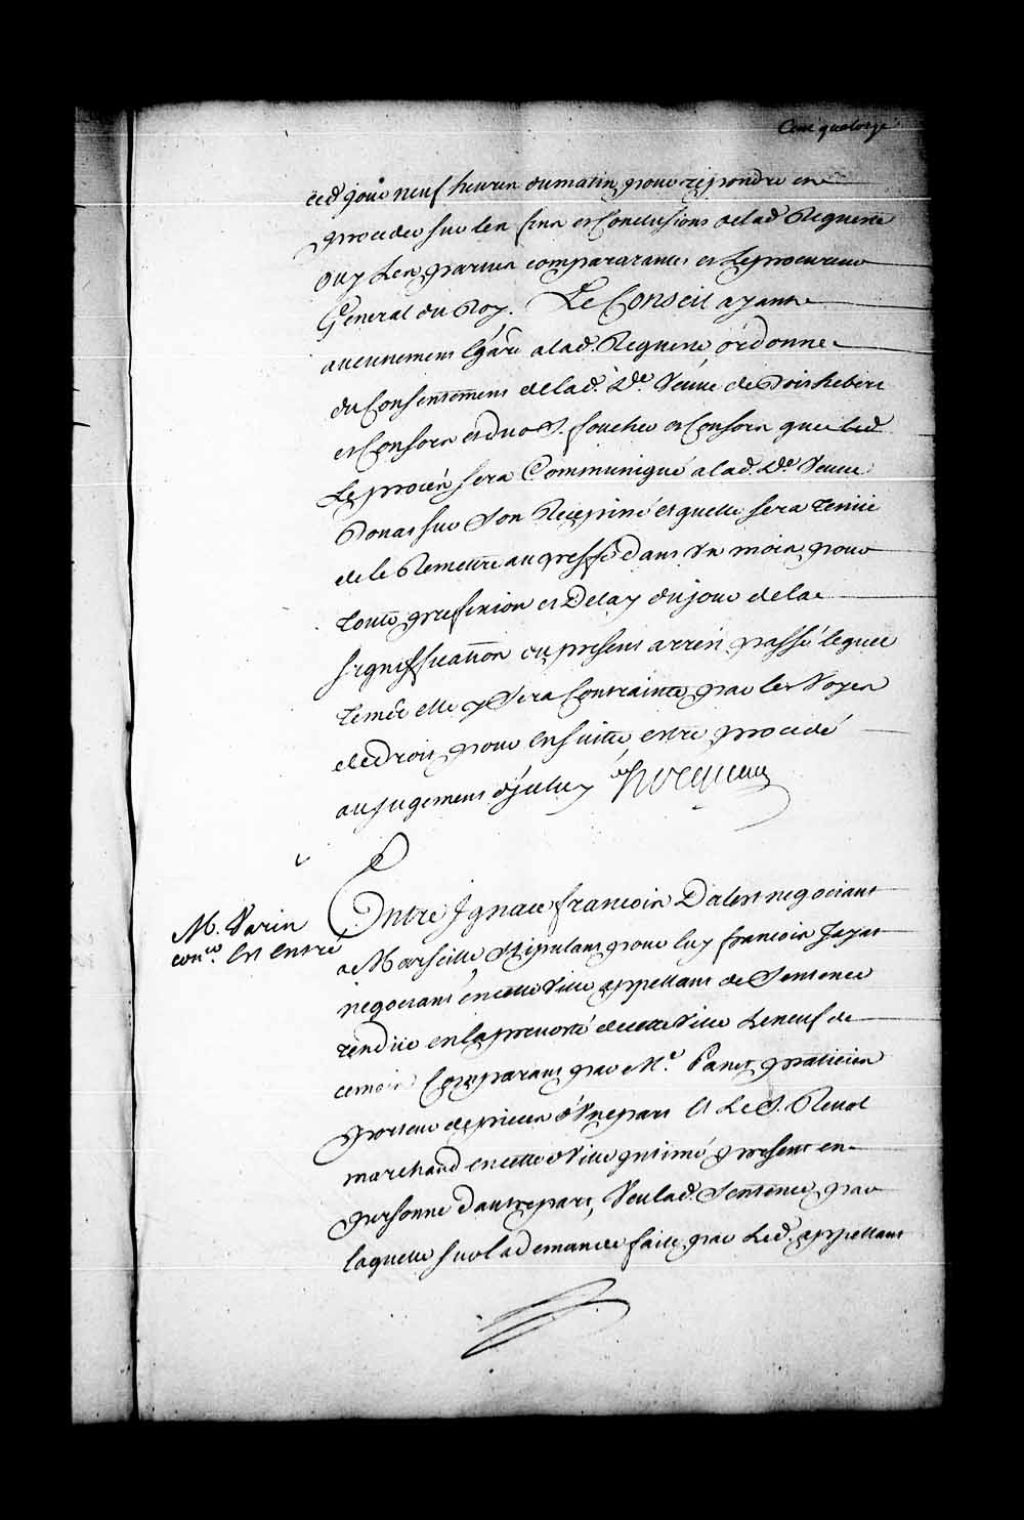 Cent quatorze
ced. jour neuf heures du matin pour repondre et
proceder sur les fins et Conclusions de lad. Requete
ouy Les parties comparantes et Le procureur
General du Roy. Le Conseil ayant
aucunement Egard a lad. Requete, ordonne
du Consentement de lad. De. Veuve de Boishebert
et Consors et dud. S. foucher et Consors que led.
Le procés sera Communiqué a lad. De. Veuve
sur Son Recepissé et quelle sera tenüe
de le Remettre au greffe dans Un mois pour
toute prefixion et Delay du jour de la
signiffication du present arrest, passé lequel
tems elle y Sera Contrainte par les Voyes
de Droit, pour ensuitte estre procedé
au jugement d'iceluy Hocquart
M. Varin
coner. Est entré
Entre Ignace francois Delert negociant
a Marseille Stipulant pour luy francois
negociant en cette Ville appellant de Sentence
rendüe en la prevosté de cette Ville Le neuf de
ce mois Comparant par Me. Panet praticien
porteur de pieces d'Une part Et Le S. Revol
marchand en cette Ville intimé present en
personne d'autre part, Veu lad. Sentence par
laquelle sur la demande faite par Led. appellant